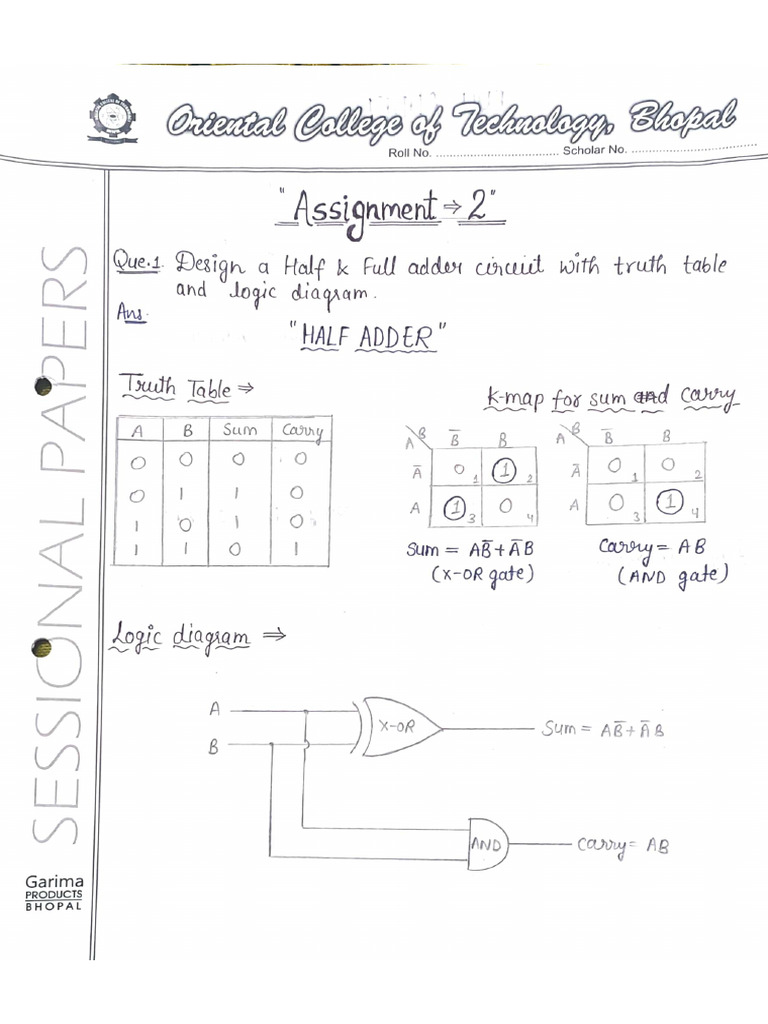 Oriental College of Technology, Bhopal
Roll No. ........................................ Scholar No. ........................................
"Assignment → 2"
Que.1. Design a Half & Full adder circuit with truth table
and logic diagram.
Ans.
"HALF ADDER"
Truth Table ⇒
A B Sum Carry
0 0 0 0
0 1 1 0
1 0 1 0
1 1 0 1
K-map for sum and Carry
A B B̅ B
A̅ 0 1 1 2
A 1 3 0 4
Sum = AB̅ + A̅B
(X-OR gate)
A B B̅ B
A̅ 0 1 0 2
A 0 3 1 4
Carry = AB
(AND gate)
Logic diagram ⇒
A
B
X-OR
Sum = AB̅ + A̅B
AND
Carry = AB
SESSIONAL PAPERS
Garima
PRODUCTS
BHOPAL